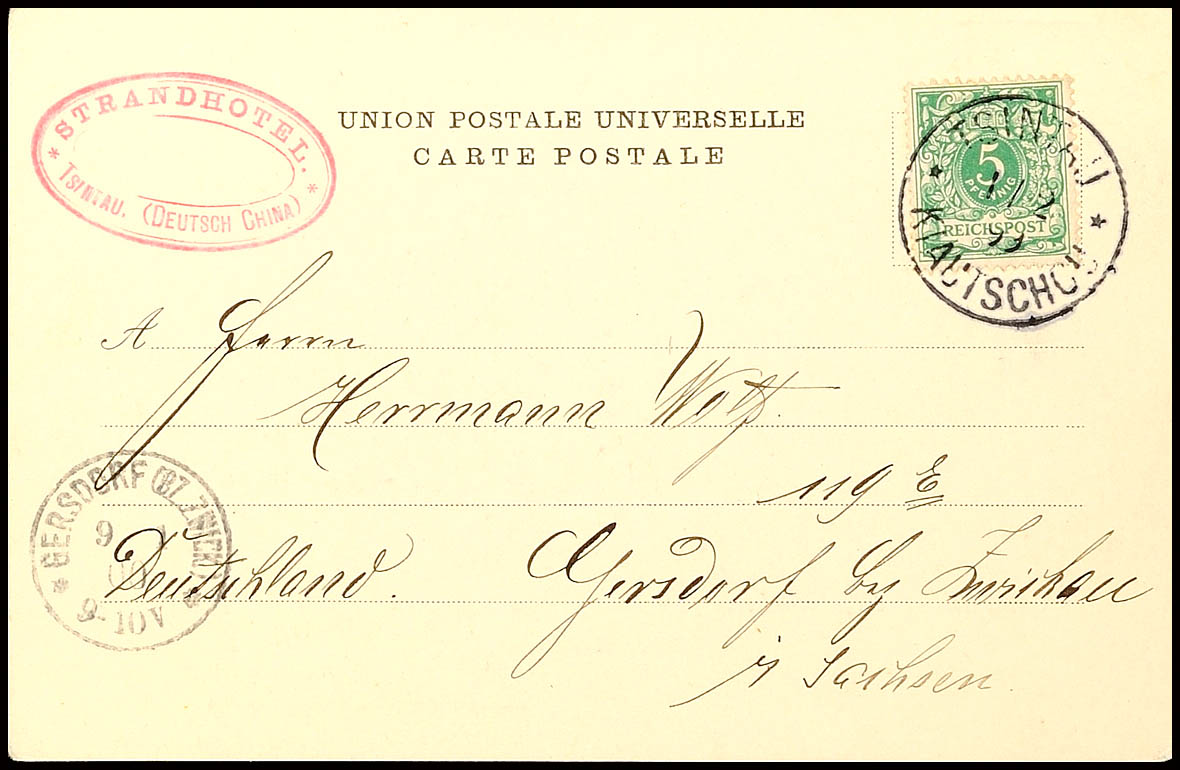 * STRANDHOTEL. *
TSINTAU. (DEUTSCH CHINA)
UNION POSTALE UNIVERSELLE
CARTE POSTALE
5
PFENNIG
REICHSPOST
TSINTAU
1/12
99
* KIAUTSCHOU *
A Herrn
Herrmann Wolf.
119 E
Deutschland. Gersdorf by Zwickau
i/ Sachsen.
* GERSDORF (BZ. ZWICK.) *
9 1
9-10V